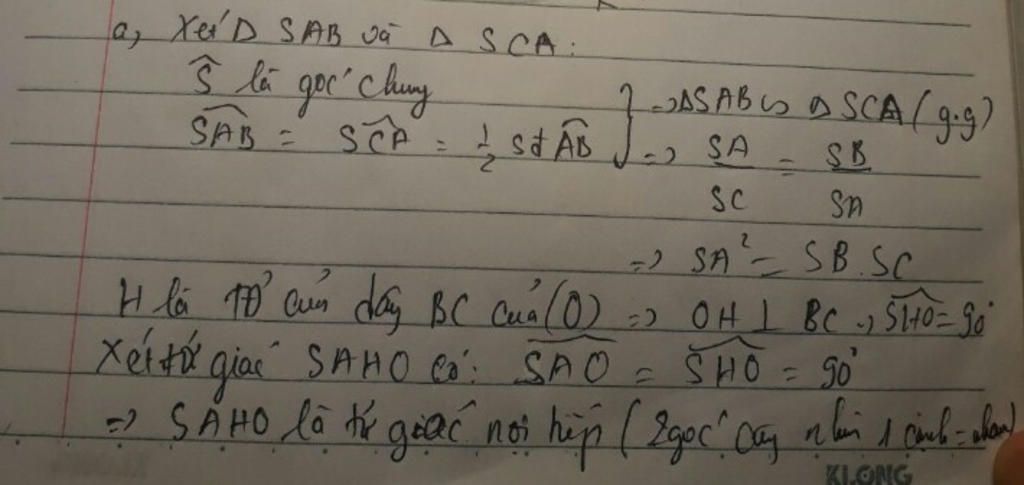 a, Xét Δ SAB và Δ SCA:
Ŝ là góc chung
SAB = SCA = 1/2 sđ AB } => ΔSAB ∽ Δ SCA (g.g)
=> SA/SC = SB/SA
=> SA² = SB.SC
H là TĐ của dây BC của (O) => OH ⊥ BC => SHO = 90°
Xét tứ giác SAHO có: SAO = SHO = 90°
=> SAHO là tứ giác nội tiếp (2 góc cùng nhìn 1 cạnh = nhau)
KLONG